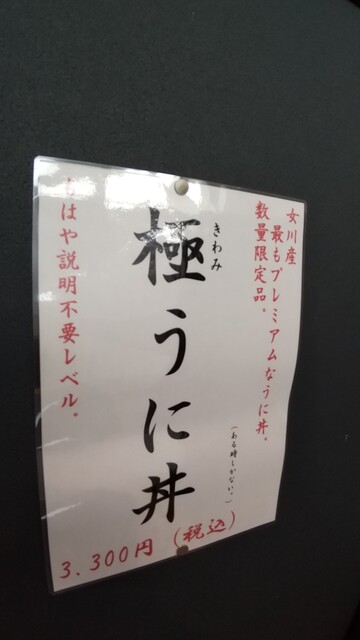 女川産
最もプレミアムなうに丼。
数量限定品。
きわみ
極うに丼
(ある時しかない。)
もはや説明不要レベル。
3.300円(税込)